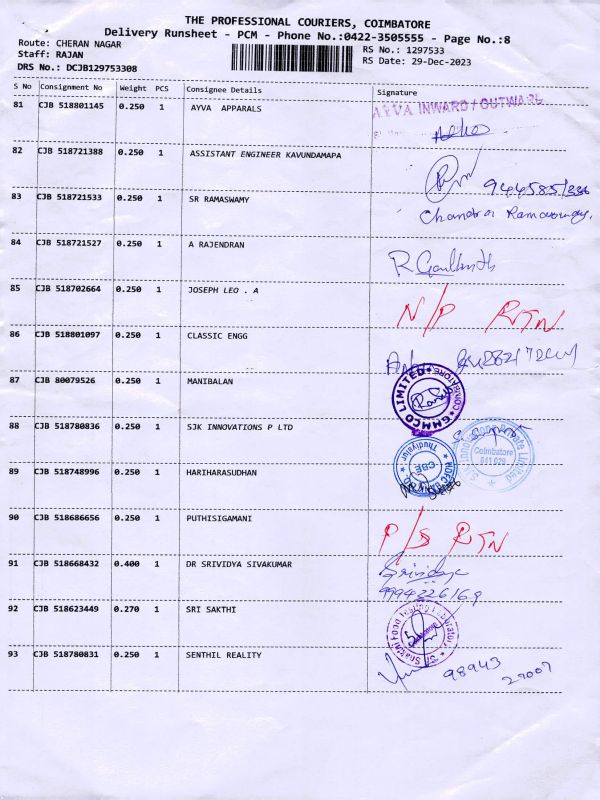 THE PROFESSIONAL COURIERS, COIMBATORE
Delivery Runsheet - PCM - Phone No.:0422-3505555 - Page No.:8
Route: CHERAN NAGAR
Staff: RAJAN
DRS No.: DCJB129753308
RS No.: 1297533
RS Date: 29-Dec-2023
S No Consignment No Weight PCS Consignee Details Signature
81 CJB 518801145 0.250 1 AYVA APPARALS AYVA INWARD / OUTWARD
82 CJB 518721388 0.250 1 ASSISTANT ENGINEER KAVUNDAMAPA
83 CJB 518721533 0.250 1 SR RAMASWAMY
84 CJB 518721527 0.250 1 A RAJENDRAN
85 CJB 518702664 0.250 1 JOSEPH LEO . A N/P RTN
86 CJB 518801097 0.250 1 CLASSIC ENGG
87 CJB 80079526 0.250 1 MANIBALAN GMMCO LIMITED COIMBATORE
88 CJB 518780836 0.250 1 SJK INNOVATIONS P LTD Coimbatore 641 029
89 CJB 518748996 0.250 1 HARIHARASUDHAN HDFC Thudiyalur CBE
90 CJB 518686656 0.250 1 PUTHISIGAMANI P/S RTN
91 CJB 518668432 0.400 1 DR SRIVIDYA SIVAKUMAR Srividya
9994326169
92 CJB 518623449 0.270 1 SRI SAKTHI
93 CJB 518780831 0.250 1 SENTHIL REALITY 98943
27007